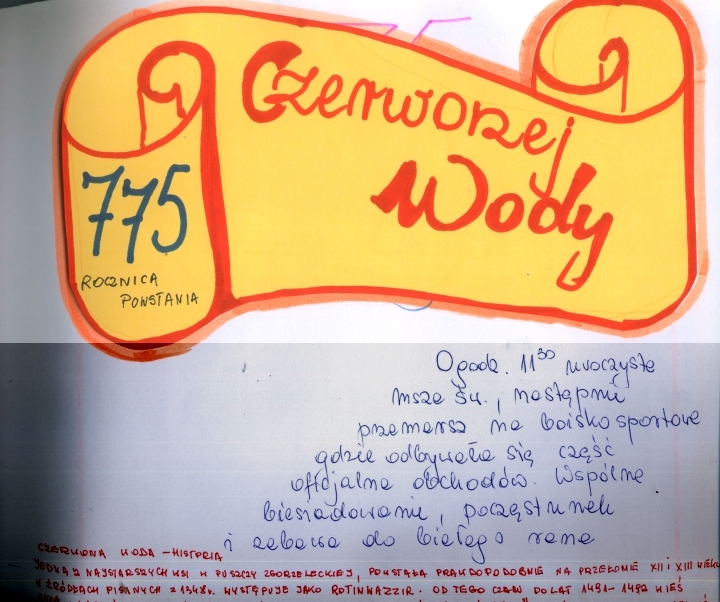 Czerwonej
Wody
775
ROCZNICA
POWSTANIA
O godz. 11³⁰ uroczyste
msze św., następnie
przemarsz na boisko sportowe
gdzie odbywała się część
oficjalna obchodów. Wspólne
biesiadowanie, poczęstunek
i zabawa do białego rana
CZERWONA WODA - HISTORIA
JEDNA Z NAJSTARSZYCH WSI W PUSZCZY ZGORZELECKIEJ, POWSTAŁA PRAWDOPODOBNIE NA PRZEŁOMIE XII i XIII WIEKU
W ŹRÓDŁACH PISANYCH Z 1348r. WYSTĘPUJE JAKO ROTINWAZZIR. OD TEGO CZASU DO LAT 1491-1492 WIEŚ